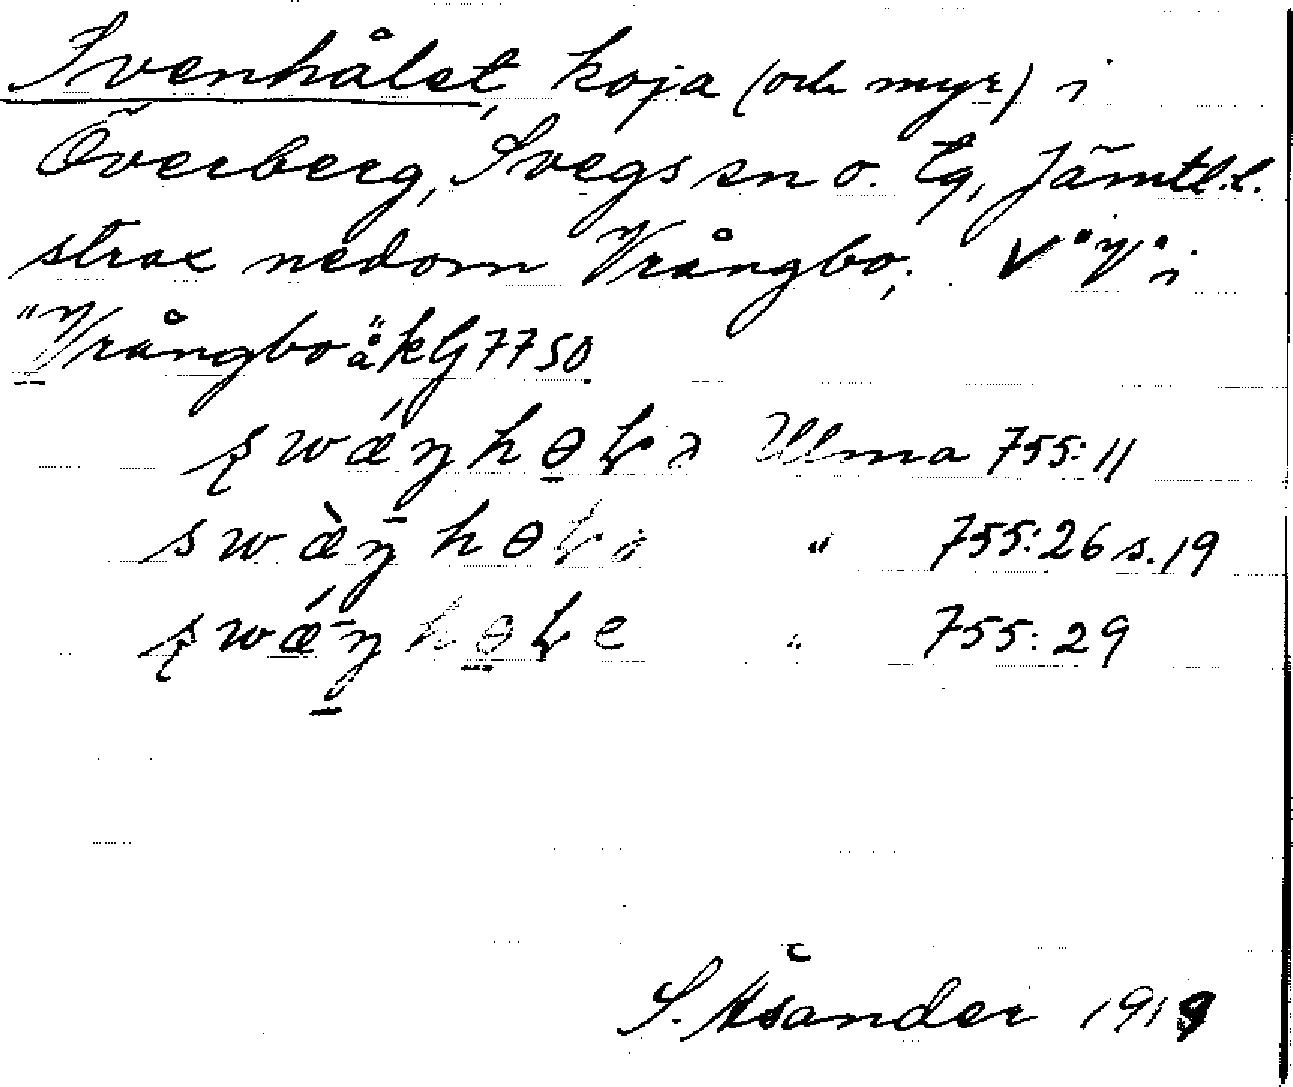 Svenhålet, koja (och myr) i
Överberg, Svegs sn o. tg, Jämtl.l.
strax nedom Vrångbo. V "V" i
"Vrångbo" å kbl 7750.
Ulma 755:11
" 755:26 s.19
" 755:29
S. Åsander 1919